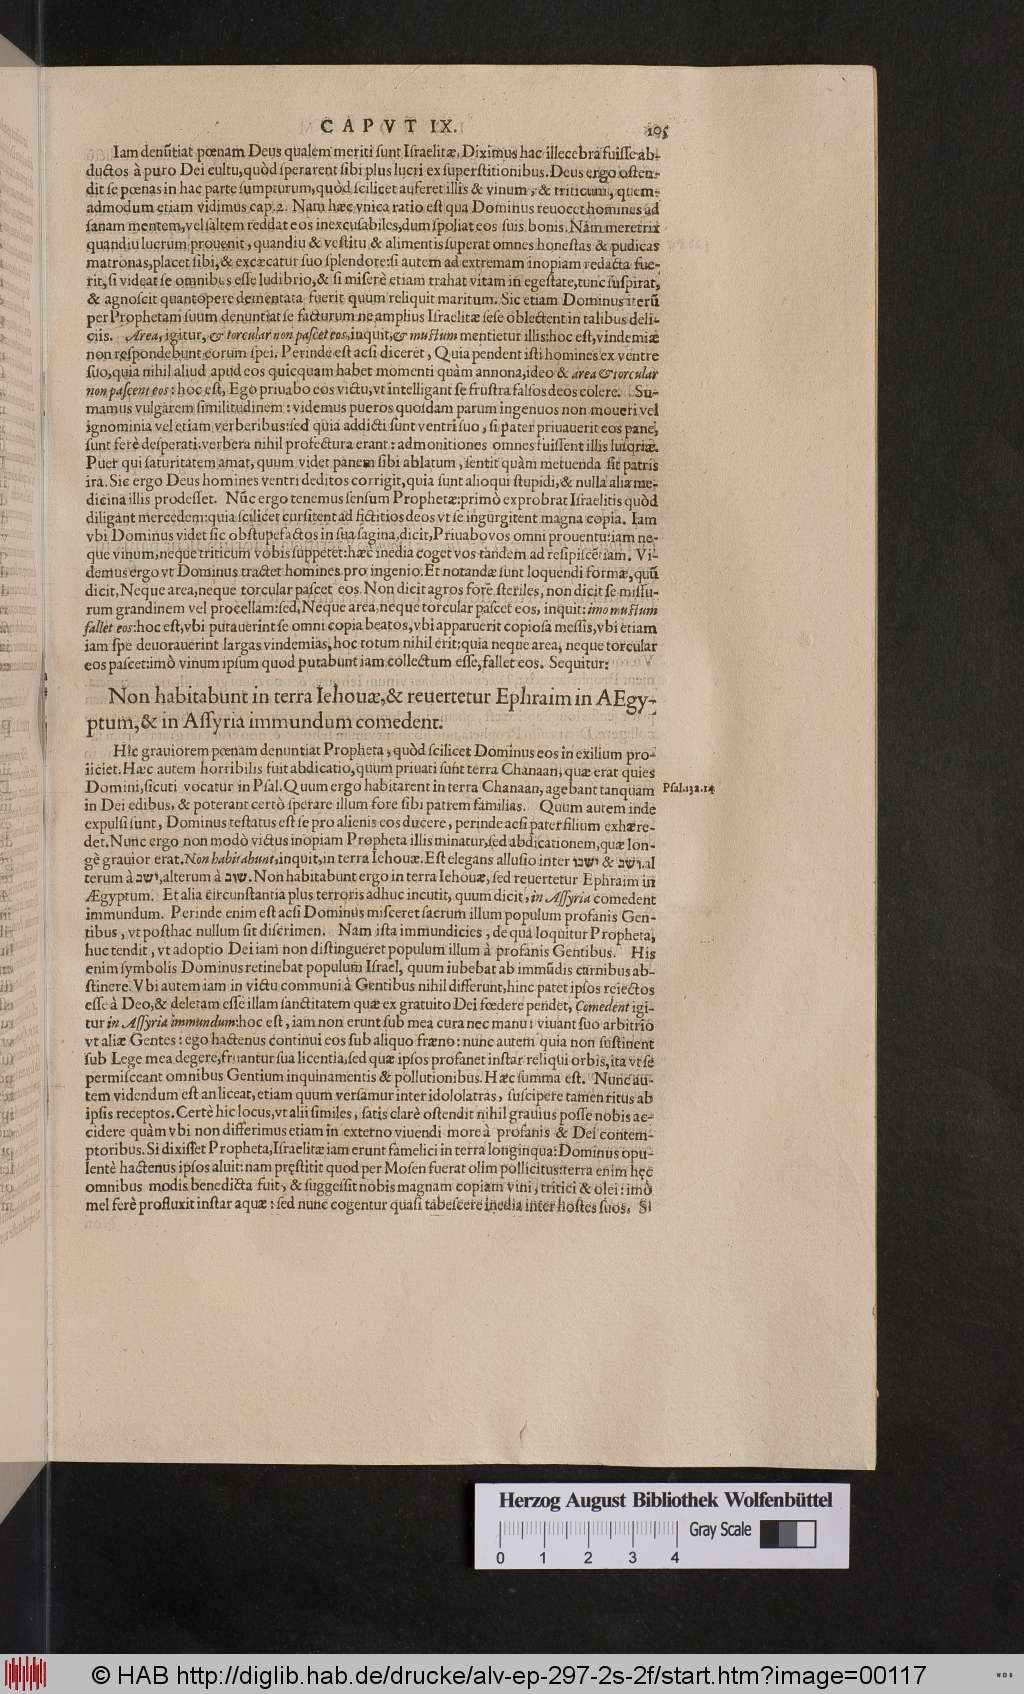 CAPVT IX. 105
Iam denūtiat pœnam Deus qualem meriti ſunt Iſraelitæ. Diximus hac illecebra fuiſſe ab-
ductos à puro Dei cultu, quòd ſperarent ſibi plus lucri ex ſuperſtitionibus. Deus ergo oſten-
dit ſe pœnas in hac parte ſumpturum, quòd ſcilicet auferet illis & vinum, & triticum, quem-
admodum etiam vidimus cap. 2. Nam hæc vnica ratio eſt qua Dominus reuocet homines ad
ſanam mentem, vel ſaltem reddat eos inexcuſabiles, dum ſpoliat eos ſuis bonis. Nam meretrix
quandiu lucrum prouenit, quandiu & veſtitu & alimentis ſuperat omnes honeſtas & pudicas
matronas, placet ſibi, & excæcatur ſuo ſplendore: ſi autem ad extremam inopiam redacta fue-
rit, ſi videat ſe omnibus eſſe ludibrio, & ſi miſerè etiam trahat vitam in egeſtate, tunc ſuſpirat,
& agnoſcit quantopere dementata fuerit quum reliquit maritum. Sic etiam Dominus iterū
per Prophetam ſuum denuntiat ſe facturum ne amplius Iſraelitæ ſeſe oblectent in talibus deli-
ciis. Area, igitur, & torcular non paſcet eos, inquit, & muſtum mentietur illis: hoc eſt, vindemiæ
non reſpondebunt eorum ſpei. Perinde eſt acſi diceret, Quia pendent iſti homines ex ventre
ſuo, quia nihil aliud apud eos quicquam habet momenti quàm annona, ideo & area & torcular
non paſcent eos: hoc eſt, Ego priuabo eos victu, vt intelligant ſe fruſtra falſos deos colere. Su-
mamus vulgarem ſimilitudinem: videmus pueros quoſdam parum ingenuos non moueri vel
ignominia vel etiam verberibus: ſed quia addicti ſunt ventri ſuo, ſi pater priuauerit eos pane,
ſunt ferè deſperati: verbera nihil profectura erant: admonitiones omnes fuiſſent illis luſoriæ.
Puer qui ſaturitatem amat, quum videt panem ſibi ablatum, ſentit quàm metuenda ſit patris
ira. Sic ergo Deus homines ventri deditos corrigit, quia ſunt alioqui ſtupidi, & nulla alia me-
dicina illis prodeſſet. Nūc ergo tenemus ſenſum Prophetæ: primò exprobrat Iſraelitis quòd
diligant mercedem: quia ſcilicet curſitent ad fictitios deos vt ſe ingurgitent magna copia. Iam
vbi Dominus videt ſic obſtupefactos in ſua ſagina, dicit, Priuabo vos omni prouentu: iam ne-
que vinum, neque triticum vobis ſuppetet: hæc inedia coget vos tandem ad reſipiſcētiam. Vi-
demus ergo vt Dominus tractet homines pro ingenio. Et notandæ ſunt loquendi formæ, quū
dicit, Neque area, neque torcular paſcet eos. Non dicit agros fore ſteriles, non dicit ſe miſſu-
rum grandinem vel procellam: ſed, Neque area, neque torcular paſcet eos, inquit: imo muſtum
fallet eos: hoc eſt, vbi putauerint ſe omni copia beatos, vbi apparuerit copioſa meſſis, vbi etiam
iam ſpe deuorauerint largas vindemias, hoc totum nihil erit: quia neque area, neque torcular
eos paſcet: imò vinum ipſum quod putabunt iam collectum eſſe, fallet eos. Sequitur:
Non habitabunt in terra Iehouæ, & reuertetur Ephraim in AEgy-
ptum, & in Aſſyria immundum comedent.
Hic grauiorem pœnam denuntiat Propheta, quòd ſcilicet Dominus eos in exilium pro-
iiciet. Hæc autem horribilis fuit abdicatio, quum priuati ſunt terra Chanaan, quæ erat quies
Domini, ſicuti vocatur in Pſal. Quum ergo habitarent in terra Chanaan, agebant tanquam Pſal. 132. 14
in Dei ædibus, & poterant certò ſperare illum fore ſibi patrem familias. Quum autem inde
expulſi ſunt, Dominus teſtatus eſt ſe pro alienis eos ducere, perinde acſi pater filium exhære-
det. Nunc ergo non modò victus inopiam Propheta illis minatur, ſed abdicationem, quæ lon-
gè grauior erat. Non habitabunt, inquit, in terra Iehouæ. Eſt elegans alluſio inter ישבו & ושב. al
terum à ישב, alterum à שוב. Non habitabunt ergo in terra Iehouæ, ſed reuertetur Ephraim in
Ægyptum. Et alia circunſtantia plus terroris adhuc incutit, quum dicit, in Aſſyria comedent
immundum. Perinde enim eſt acſi Dominus miſceret ſacrum illum populum profanis Gen-
tibus, vt poſthac nullum ſit diſcrimen. Nam iſta immundicies, de qua loquitur Propheta,
huc tendit, vt adoptio Dei iam non diſtingueret populum illum à profanis Gentibus. His
enim ſymbolis Dominus retinebat populum Iſrael, quum iubebat ab immūdis carnibus ab-
ſtinere. Vbi autem iam in victu communi à Gentibus nihil differunt, hinc patet ipſos reiectos
eſſe à Deo, & deletam eſſe illam ſanctitatem quæ ex gratuito Dei fœdere pendet, Comedent igi-
tur in Aſſyria immundum: hoc eſt, iam non erunt ſub mea cura nec manu: viuant ſuo arbitrio
vt aliæ Gentes: ego hactenus continui eos ſub aliquo fræno: nunc autem quia non ſuſtinent
ſub Lege mea degere, fruantur ſua licentia, ſed quæ ipſos profanet inſtar reliqui orbis, ita vt ſe
permiſceant omnibus Gentium inquinamentis & pollutionibus. Hæc ſumma eſt. Nunc au-
tem videndum eſt an liceat, etiam quum verſamur inter idololatras, ſuſcipere tamen ritus ab
ipſis receptos. Certè hic locus, vt alii ſimiles, ſatis clarè oſtendit nihil grauius poſſe nobis ac-
cidere quàm vbi non differimus etiam in externo viuendi more à profanis & Dei contem-
ptoribus. Si dixiſſet Propheta, Iſraelitæ iam erunt famelici in terra longinqua: Dominus opu-
lentè hactenus ipſos aluit: nam pręſtitit quod per Moſen fuerat olim pollicitus: terra enim hęc
omnibus modis benedicta fuit, & ſuggeſſit nobis magnam copiam vini, tritici & olei: imò
mel ferè profluxit inſtar aquæ: ſed nunc cogentur quaſi tabeſcere inedia inter hoſtes ſuos. Si
Herzog August Bibliothek Wolfenbüttel
Gray Scale
0 1 2 3 4
© HAB http://diglib.hab.de/drucke/alv-ep-297-2s-2f/start.htm?image=00117